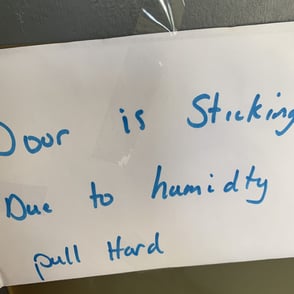 Door is Sticking
Due to humidty
pull Hard